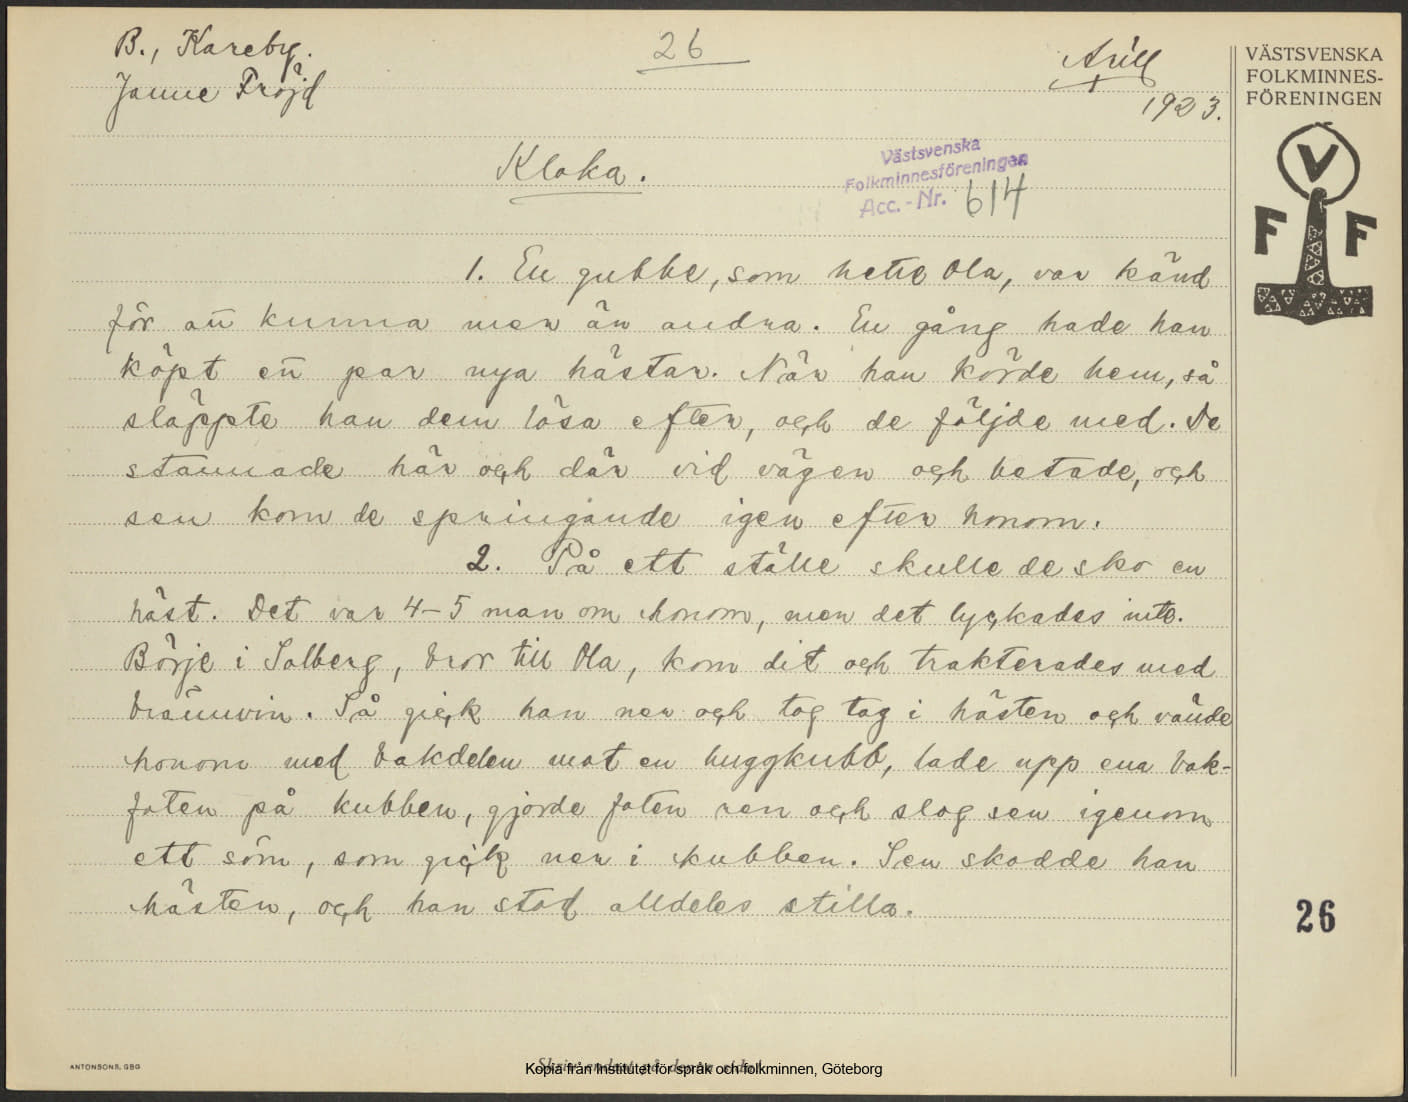 B., Kareby.
Janne Fröjd
26
Arill
1923.
VÄSTSVENSKA
FOLKMINNES-
FÖRENINGEN
V
F F
Kloka.
Västsvenska
Folkminnesföreningen
Acc.-Nr. 614
1. En gubbe, som hette Ola, var känd
för att kunna mer än andra. En gång hade han
köpt ett par nya hästar. När han körde hem, så
släppte han dem lösa efter, och de följde med. De
stannade här och där vid vägen och betade, och
sen kom de springande igen efter honom.
2. På ett ställe skulle de sko en
häst. Det var 4-5 man om honom, men det lyckades inte.
Börje i Solberg, bror till Ola, kom dit och trakterades med
brännvin. Så gick han ner och tog tag i hästen och vände
honom med bakdelen mot en huggkubb, lade upp ena bak-
foten på kubben, gjorde foten ren och slog sen igenom
ett söm, som gick ner i kubben. Sen skodde han
hästen, och han stod alldeles stilla.
26
ANTONSONS, GBG
Kopia från Institutet för språk och folkminnen, Göteborg